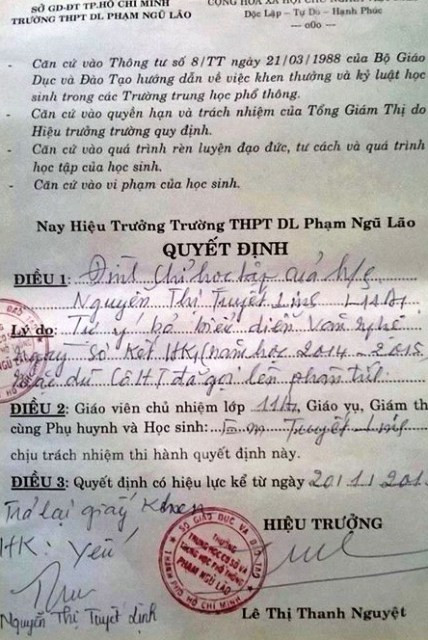 SỞ GD-ĐT TP.HỒ CHÍ MINH
TRƯỜNG THPT DL PHẠM NGŨ LÃO
Độc Lập - Tự Do - Hạnh Phúc
--- o0o ---
- Căn cứ vào Thông tư số 8/TT ngày 21/03/1988 của Bộ Giáo
Dục và Đào Tạo hướng dẫn về việc khen thưởng và kỷ luật học
sinh trong các Trường trung học phổ thông.
- Căn cứ vào quyền hạn và trách nhiệm của Tổng Giám Thị do
Hiệu trưởng trường quy định.
- Căn cứ vào quá trình rèn luyện đạo đức, tư cách và quá trình
học tập của học sinh.
- Căn cứ vào vi phạm của học sinh.
Nay Hiệu Trưởng Trường THPT DL Phạm Ngũ Lão
QUYẾT ĐỊNH
ĐIỀU 1: Đình chỉ học tập của h/s
Nguyễn Thị Tuyết Linh 11A1
Lý do: Tự ý bỏ biểu diễn văn nghệ
ngày Sơ kết HK1 (năm học 2014 - 2015
mặc dù Cô HT đã gọi lên phân tích
ĐIỀU 2: Giáo viên chủ nhiệm lớp 11A1, Giáo vụ, Giám th
cùng Phụ huynh và Học sinh: Em Tuyết Linh
chịu trách nhiệm thi hành quyết định này.
ĐIỀU 3: Quyết định có hiệu lực kể từ ngày 20/1/201
Trả lại giấy khen
HK: Yếu
HIỆU TRƯỞNG
SỞ GIÁO DỤC VÀ ĐÀO TẠO
TRƯỜNG
TRUNG HỌC CƠ SỞ VÀ
TRUNG HỌC PHỔ THÔNG
PHẠM NGŨ LÃO
THÀNH PHỐ HỒ CHÍ MINH
Nguyễn Thị Tuyết Linh
Lê Thị Thanh Nguyệt